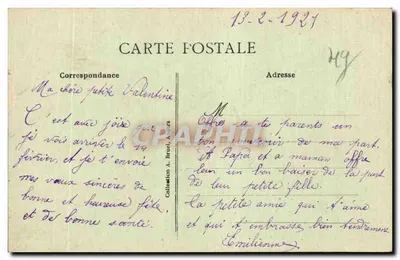 13-2-1921
CARTE POSTALE
Correspondance
Adresse
49
Ma chère petite Valentine
C'est avec joie que
je vois arriver le 14
février et je t'envoie
mes vœux sincères de
bonne et heureuse fête
et de bonne santé.
Collection A. Bruel,
M
Offre a te parents un
bon souvenir de ma part.
A Papa et a maman offre
leur un bon baiser de la part
de leur petite fille.
La petite amie qui t'aime
et qui t'embrasse bien tendrement
Emilienne
CARTAPHILIE